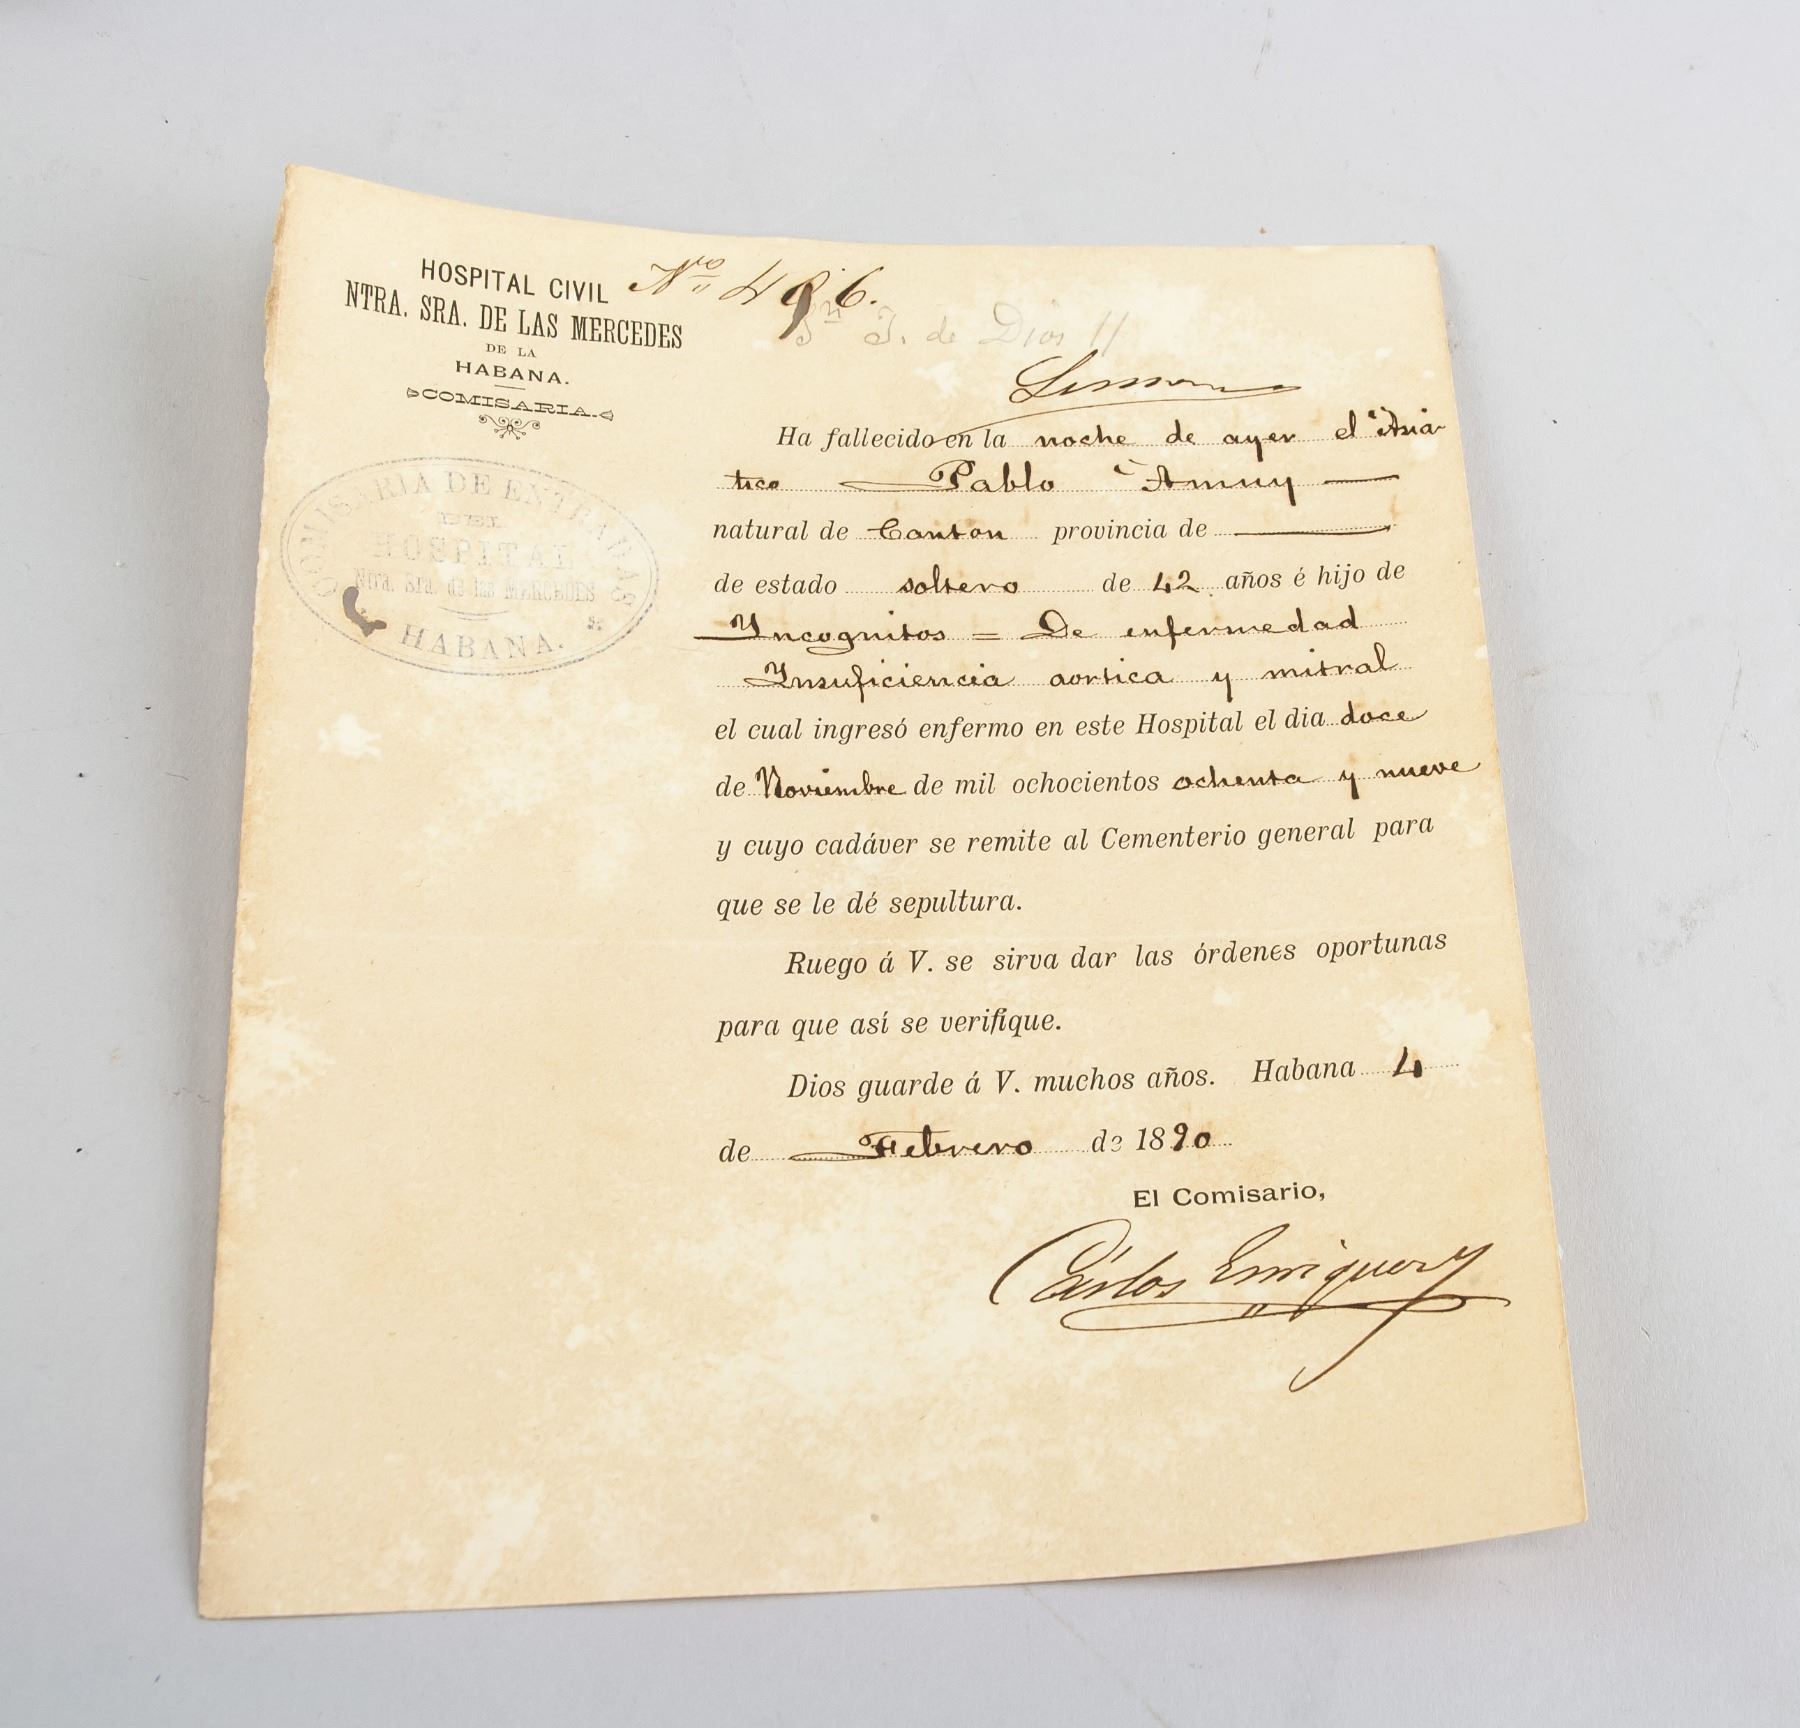 HOSPITAL CIVIL
NTRA. SRA. DE LAS MERCEDES
DE LA
HABANA.
COMISARIA.
Nro 496.
Sn J. de Dios 11
COMISARIA DE ENTRADAS
DEL
HOSPITAL
Ntra. Sra. de las MERCEDES
HABANA.
Ha fallecido en la noche de ayer el Asiá-
tico Pablo Amuy
natural de Canton provincia de
de estado soltero de 42 años é hijo de
Yncognitos = De enfermedad
Insuficiencia aortica y mitral
el cual ingresó enfermo en este Hospital el dia doce
de Noviembre de mil ochocientos ochenta y nueve
y cuyo cadáver se remite al Cementerio general para
que se le dé sepultura.
Ruego á V. se sirva dar las órdenes oportunas
para que así se verifique.
Dios guarde á V. muchos años. Habana 4
de Febrero de 1890
El Comisario,
Cárlos Enriquez